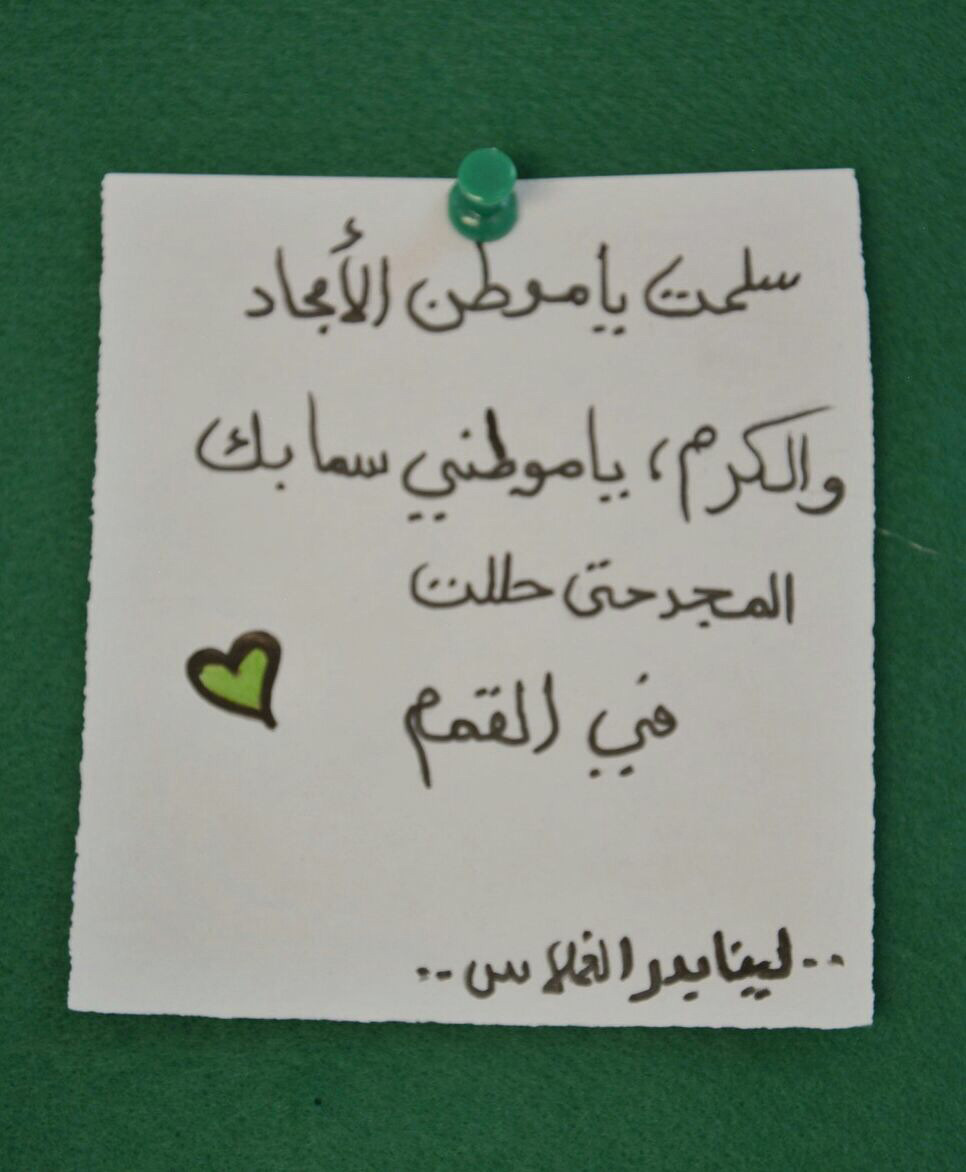 سلمت ياموطن الأمجاد
والكرم، ياموطني سما بك
المجد حتى حللت
في القمم
..لينا بدر الغملاس..